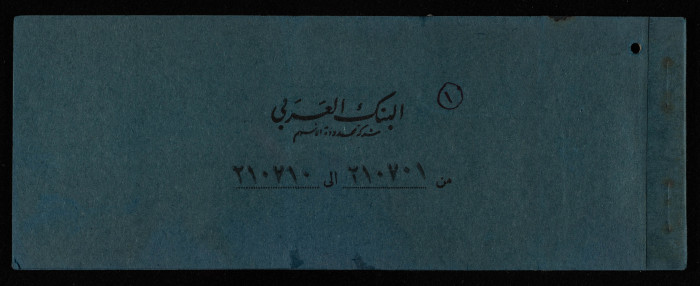 ١
البنك العربي
شركة محدودة الأسهم
من ٢١٠٧٠١ الى ٢١٠٧١٠